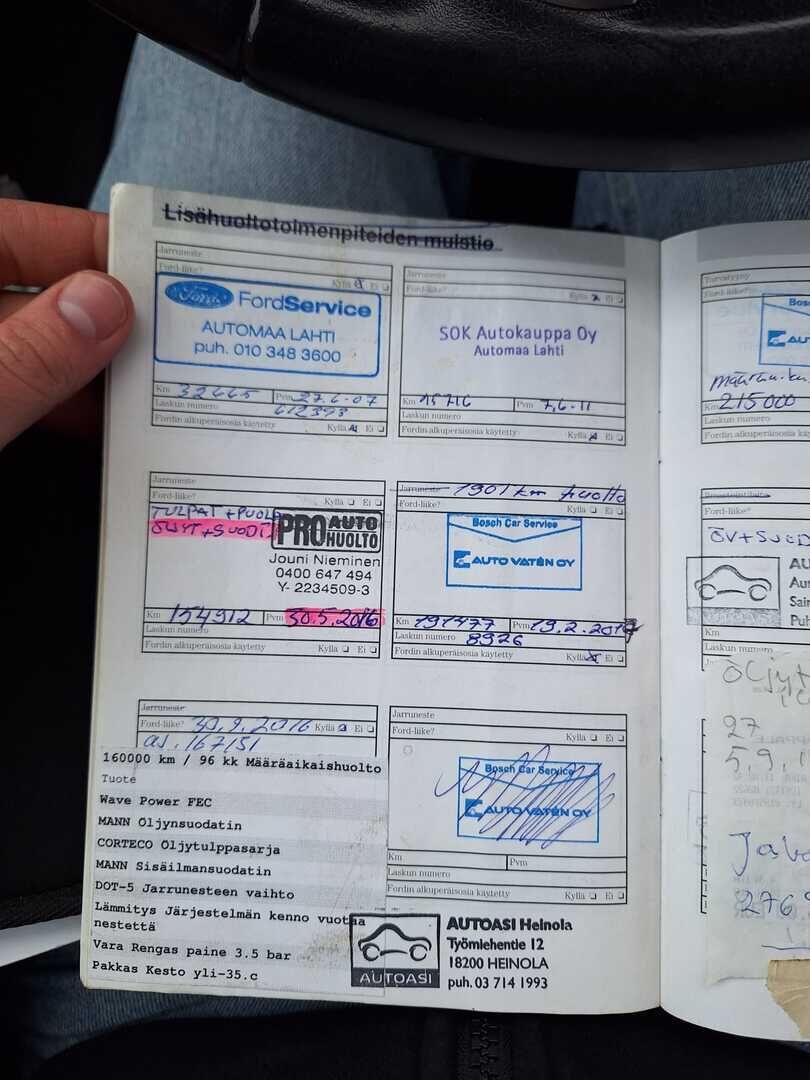 Lisähuoltotoimenpiteiden muistio
Jarruneste
Ford-liike? Kyllä Ei
Ford
FordService
AUTOMAA LAHTI
puh. 010 348 3600
Km 32665 Pvm 27.6-07
Laskun numero 612393
Fordin alkuperäisosia käytetty Kyllä Ei
Jarruneste
Ford-liike? Kyllä Ei
SOK Autokauppa Oy
Automaa Lahti
Km Pvm 7.6-11
Laskun numero
Fordin alkuperäisosia käytetty Kyllä Ei
Jarruneste
Ford-liike? Kyllä Ei
TULPAT + PUOLA
ÖLJYT + SUODT
PRO AUTO HUOLTO
Jouni Nieminen
0400 647 494
Y- 2234509-3
Km 154912 Pvm 30.5.2016
Laskun numero
Fordin alkuperäisosia käytetty Kyllä Ei
Jarruneste km huolto
Ford-liike?
Bosch Car Service
AUTO VATÉN OY
Km 191477 Pvm 19.2.
Laskun numero 8926
Fordin alkuperäisosia käytetty Kyllä Ei
Jarruneste
Ford-liike? 30.9.2016 Kyllä Ei
aj. 167151
160000 km / 96 kk Määräaikaishuolto
Tuote
Wave Power FEC
MANN Öljynsuodatin
CORTECO Öljytulppasarja
MANN Sisäilmansuodatin
DOT-5 Jarrunesteen vaihto
Lämmitys Järjestelmän kenno vuotaa
nestettä
Vara Rengas paine 3.5 bar
Pakkas Kesto yli-35.c
Jarruneste
Ford-liike? Kyllä Ei
Bosch Car Service
AUTO VATÉN OY
Km Pvm
Laskun numero
Fordin alkuperäisosia käytetty Kyllä Ei
AUTOASI
AUTOASI Heinola
Työmiehentie 12
18200 HEINOLA
puh. 03 714 1993
Ford-liike?
Bosch
AUT
Km 215000
Laskun numero
Fordin alkuperäisosia
Ford-liike?
ÖV+SUOD
AU
Aut
Sain
Puh
Km
Laskun numero
Öljyt
27
5,9,1
276,9